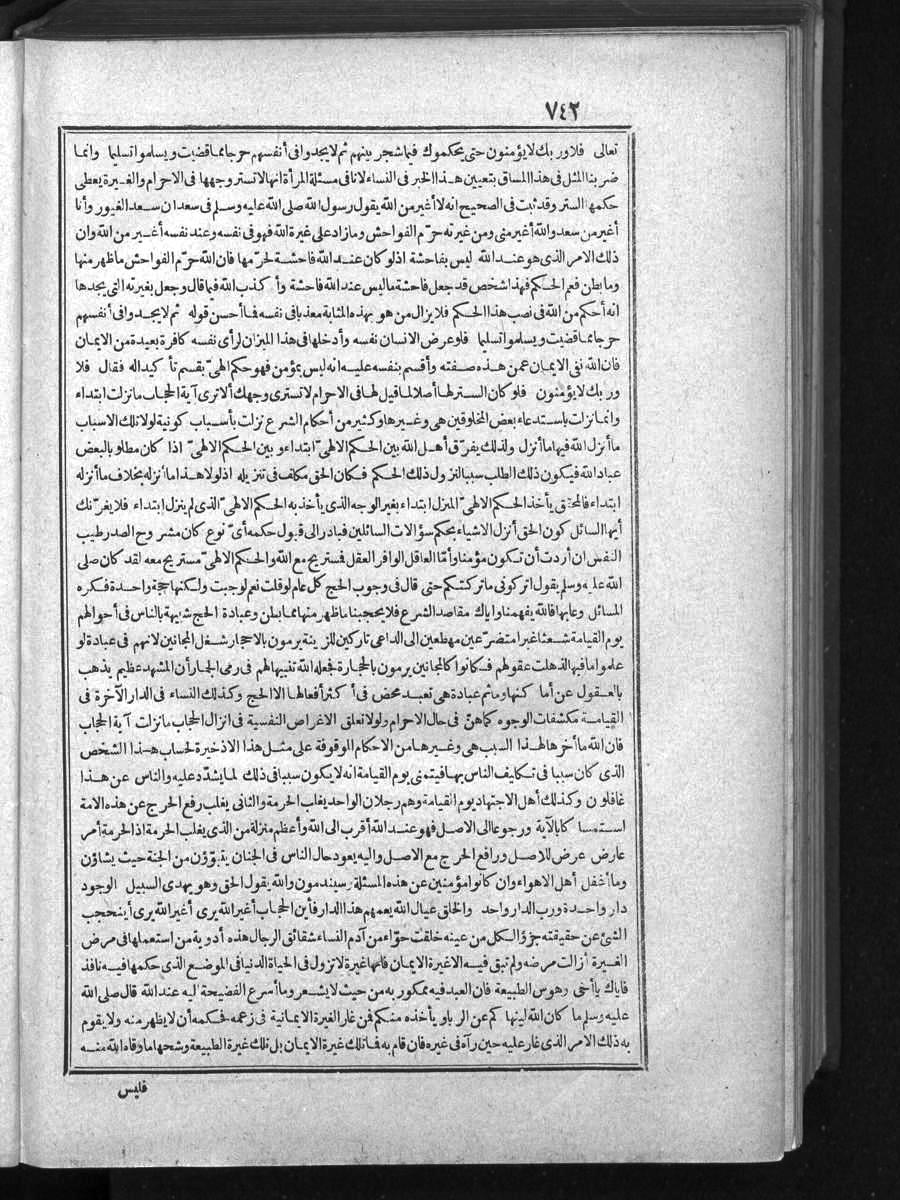 ٧٤٢
تعالى فلا وربك لا يؤمنون حتى يحكموك فيما شجر بينهم ثم لا يجدوا فى أنفسهم حرجا مما قضيت ويسلموا تسليما وانما
ضربنا المثل فى هذا المساق بتعيين هذا الخبر فى النساء لانا فى مسئلة المرأة انها لا تستر وجهها فى الاحرام والغيرة يعطى
حكمها الستر وقد ثبت فى الصحيح انه لا أغير من الله يقول رسول الله صلى الله عليه وسلم فى سعد ان سعد الغيور وأنا
أغير من سعد والله أغير منى ومن غيرته حرّم الفواحش وما زاد على غيرة الله فهو فى نفسه وعند نفسه أغير من الله وان
ذلك الامر الذى هو عند الله ليس بفاحشة اذ لو كان عند الله فاحشة لحرّمها فان الله حرّم الفواحش ما ظهر منها
وما بطن فعم الحكم فهذا شخص قد جعل فاحشة ما ليس عند الله فاحشة وأكذب الله فيما قال وجعل بغيرته التى يجدها
انه أحكم من الله فى نصب هذا الحكم فلا يزال من هو بهذه المثابة معذبا فى نفسه فما أحسن قوله ثم لا يجدوا فى أنفسهم
حرجا مما قضيت ويسلموا تسليما فلو عرض الانسان نفسه وأدخلها فى هذا الميزان لرأى نفسه كافرة بعيدة من الايمان
فان الله نفى الايمان عمن هذه صفته وأقسم بنفسه عليه انه ليس بمؤمن فهو حكم الهىّ بقسم تأكيدا له فقال فلا
وربك لا يؤمنون فلو كان الستر لها أصلا لما قيل لها فى الاحرام لا تسترى وجهك ألا ترى آية الحجاب ما نزلت ابتداء
وانما نزلت باستدعاء بعض المخلوقين هى وغيرها وكثير من أحكام الشرع نزلت بأسباب كونية لولا تلك الاسباب
ما أنزل الله فيها ما أنزل ولذلك يفرّق أهل الله بين الحكم الالهىّ ابتداء وبين الحكم الالهىّ اذا كان مطلوبا لبعض
عباد الله فيكون ذلك الطلب سببا لنزول ذلك الحكم فكان الحق مكلف فى تنزيله اذ لولا هذا ما أنزله بخلاف ما أنزله
ابتداء فالمحقق يأخذ الحكم الالهىّ المنزل ابتداء بغير الوجه الذى يأخذ به الحكم الالهىّ الذى لم ينزل ابتداء فلا يغرّنك
أيها السائل كون الحق أنزل الاشياء بحكم سؤالات السائلين فبادر الى قبول حكمه أىّ نوع كان مشروح الصدر طيب
النفس ان أردت أن تكون مؤمنا وأمّا العاقل الوافر العقل فمستريح مع الله والحكم الالهىّ مستريح معه لقد كان صلى
الله عليه وسلم يقول اتركونى ما تركتكم حتى قال فى وجوب الحج كل عام لو قلت نعم لوجبت ولكنها حجة واحدة فكره
المسائل وعابها فالله يفهمنا واياك مقاصد الشرع فلا يحجبنا ما ظهر منها مما بطن وعبادة الحج شبيهة بالناس فى أحوالهم
يوم القيامة شعثا غبرا متضرّعين مهطعين الى الداعى تاركين للزينة يرمون بالاحجار شغل المجانين لانهم فى عبادة لو
علموا ما فيها لذهلت عقولهم فكانوا كالمجانين يرمون بالحجارة فجعله الله تنبيها لهم فى رمى الجمار أن المشهد عظيم يذهب
بالعقول عن أماكنها وما ثم عبادة هى تعبد محض فى أكثر أفعالها الا الحج وكذلك النساء فى الدار الآخرة فى
القيامة مكشفات الوجوه كما هنّ فى حال الاحرام ولولا تعلق الاغراض النفسية فى انزال الحجاب ما نزلت آية الحجاب
فان الله ما أخرها لهذا السبب هى وغيرها من الاحكام الموقوفة على مثل هذا الا ذخيرة لحساب هذا الشخص
الذى كان سببا فى تكليف الناس بها فيتمنى يوم القيامة انه لا يكون سببا فى ذلك لما يشدّد عليه والناس عن هذا
غافلون وكذلك أهل الاجتهاد يوم القيامة وهم رجلان الواحد يغلب الحرمة والثانى يغلب رفع الحرج عن هذه الامة
استمساكا بالآية ورجوعا الى الاصل فهو عند الله أقرب الى الله وأعظم منزلة من الذى يغلب الحرمة اذ الحرمة أمر
عارض عرض للاصل ورافع الحرج مع الاصل واليه يعود حال الناس فى الجنان يتبوّؤن من الجنة حيث يشاؤن
وما أغفل أهل الاهواء وان كانوا مؤمنين عن هذه المسئلة سيندمون والله يقول الحق وهو يهدى السبيل الوجود
دار واحدة ورب الدار واحد والخلق عيال الله يعمهم هذا الدار فأين الحجاب أغير الله يرى أغير الله يرى أينحجب
الشئ عن حقيقته جزؤ الكل من عينه خلقت حوّاء من آدم النساء شقائق الرجال هذه أدوية من استعملها فى مرض
الغيرة أزالت مرضه ولم تبق فيه الا غيرة الايمان فانها غيرة لا تزول فى الحياة الدنيا فى الموضع الذى حكمها فيه نافذ
فاياك يا أخى وهوس الطبيعة فان العبد فيه ممكور به من حيث لا يشعر وما أسرع الفضيحة اليه عند الله قال صلى الله
عليه وسلم ما كان الله لينهاكم عن الربا ويأخذه منكم فمن غار الغيرة الايمانية فى زعمه فحكمه أن لا يظهر منه ولا يقوم
به ذلك الامر الذى غار عليه حين رآه فى غيره فان قام به فما تلك غيرة الايمان بل تلك غيرة الطبيعة وشحها ما وقاه الله منه
فليس